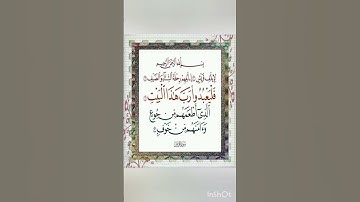 بسم الله الرحمن الرحيم
لإيلاف قريش إيلافهم رحلة الشتاء والصيف
فليعبدوا رب هذا البيت
الذي أطعمهم من جوع
وءامنهم من خوف
InShot